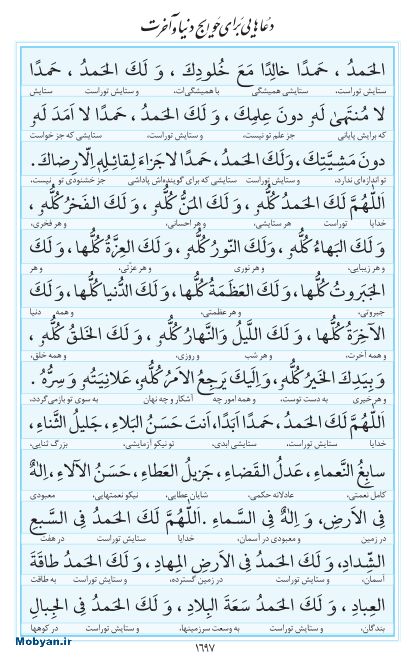 دعاهایی برای حوایج دنیا و آخرت
الحَمدُ ، حَمدًا خالِدًا مَعَ خُلودِكَ ، وَ لَكَ الحَمدُ ، حَمدًا
ستایش توراست، ستایشی همیشگی با همیشگی‌ات، و ستایش توراست، ستایش
لا مُنتَهىٰ لَهو دونَ عِلمِكَ ، وَ لَكَ الحَمدُ ، حَمدًا لا اَمَدَ لَهو
که برایش پایانی جز علم تو نیست، و ستایش توراست، ستایشی که جز خواست
دونَ مَشیَّتِكَ، وَلَكَ الحَمدُ، حَمدًا لاجَزاءَ لِقائِلِهٖ اِلّا رِضاكَ .
تو اندازه‌ای ندارد، و ستایش توراست ستایشی که برای گوینده‌اش پاداشی جز خشنودی تو نیست،
اَللّٰهُمَّ لَكَ الحَمدُ كُلُّهو ، وَ لَكَ المَنُّ كُلُّهو ، وَ لَكَ الفَخرُ كُلُّهو ،
خدایا توراست هر ستایشی، و هر احسانی، و هر فخری،
وَ لَكَ البَهاءُ كُلُّهو ، وَلَكَ النّورُ كُلُّهو ، وَ لَكَ العِزَّةُ كُلُّها، وَ لَكَ
و هر زیبایی، و هر نوری و هر عزّتی، و هر
الجَبَروتُ كُلُّها، وَ لَكَ العَظَمَةُ كُلُّها، وَ لَكَ الدُّنیا كُلُّها، وَ لَكَ
جبروتی، و هر عظمتی، و همه دنیا
الآخِرَةُ كُلُّها ، وَ لَكَ اللَّیلُ وَالنَّهارُ كُلُّهو ، وَ لَكَ الخَلقُ كُلُّهو ،
و همه آخرت، و هر شب و روزی، و همه خلق،
وَ بِیَدِكَ الخَیرُ كُلُّهو، وَاِلَیكَ یَرجِعُ الاَمرُ كُلُّهو، عَلانِیَتُهو وَ سِرُّهو .
و هر خیری به دست توست، و همه امور چه آشکار و چه نهان به سوی تو بازمی‌گردد.
اَللّٰهُمَّ لَكَ الحَمدُ، حَمدًا اَبَدًا، اَنتَ حَسَنُ البَلاءِ، جَلیلُ الثَّناءِ،
خدایا ستایش توراست، ستایشی ابدی، تو نیکو آزمایشی، بزرگ ثنایی،
سابِغُ النَّعماءِ، عَدلُ القَضاءِ، جَزیلُ العَطاءِ، حَسَنُ الآلاءِ، اِلٰهٌ
کامل نعمتی، عادلانه حکمی، شایان عطایی، نیکو نعمتهایی، معبودی
فِی الاَرضِ، وَ اِلٰهٌ فِی السَّماءِ .اَللّٰهُمَّ لَكَ الحَمدُ فِی السَّبعِ
در زمین و معبودی در آسمان، خدایا ستایش توراست در هفت
الشِّدادِ، وَ لَكَ الحَمدُ فِی الاَرضِ المِهادِ، وَ لَكَ الحَمدُ طاقَةَ
آسمان، و ستایش توراست در زمین گسترده، و ستایش توراست به طاقت
العِبادِ ، وَ لَكَ الحَمدُ سَعَةَ البِلادِ ، وَ لَكَ الحَمدُ فِی الجِبالِ
بندگان، و ستایش توراست به وسعت سرزمینها، و ستایش توراست در کوهها
۱۶۹۷
Mobyan.ir